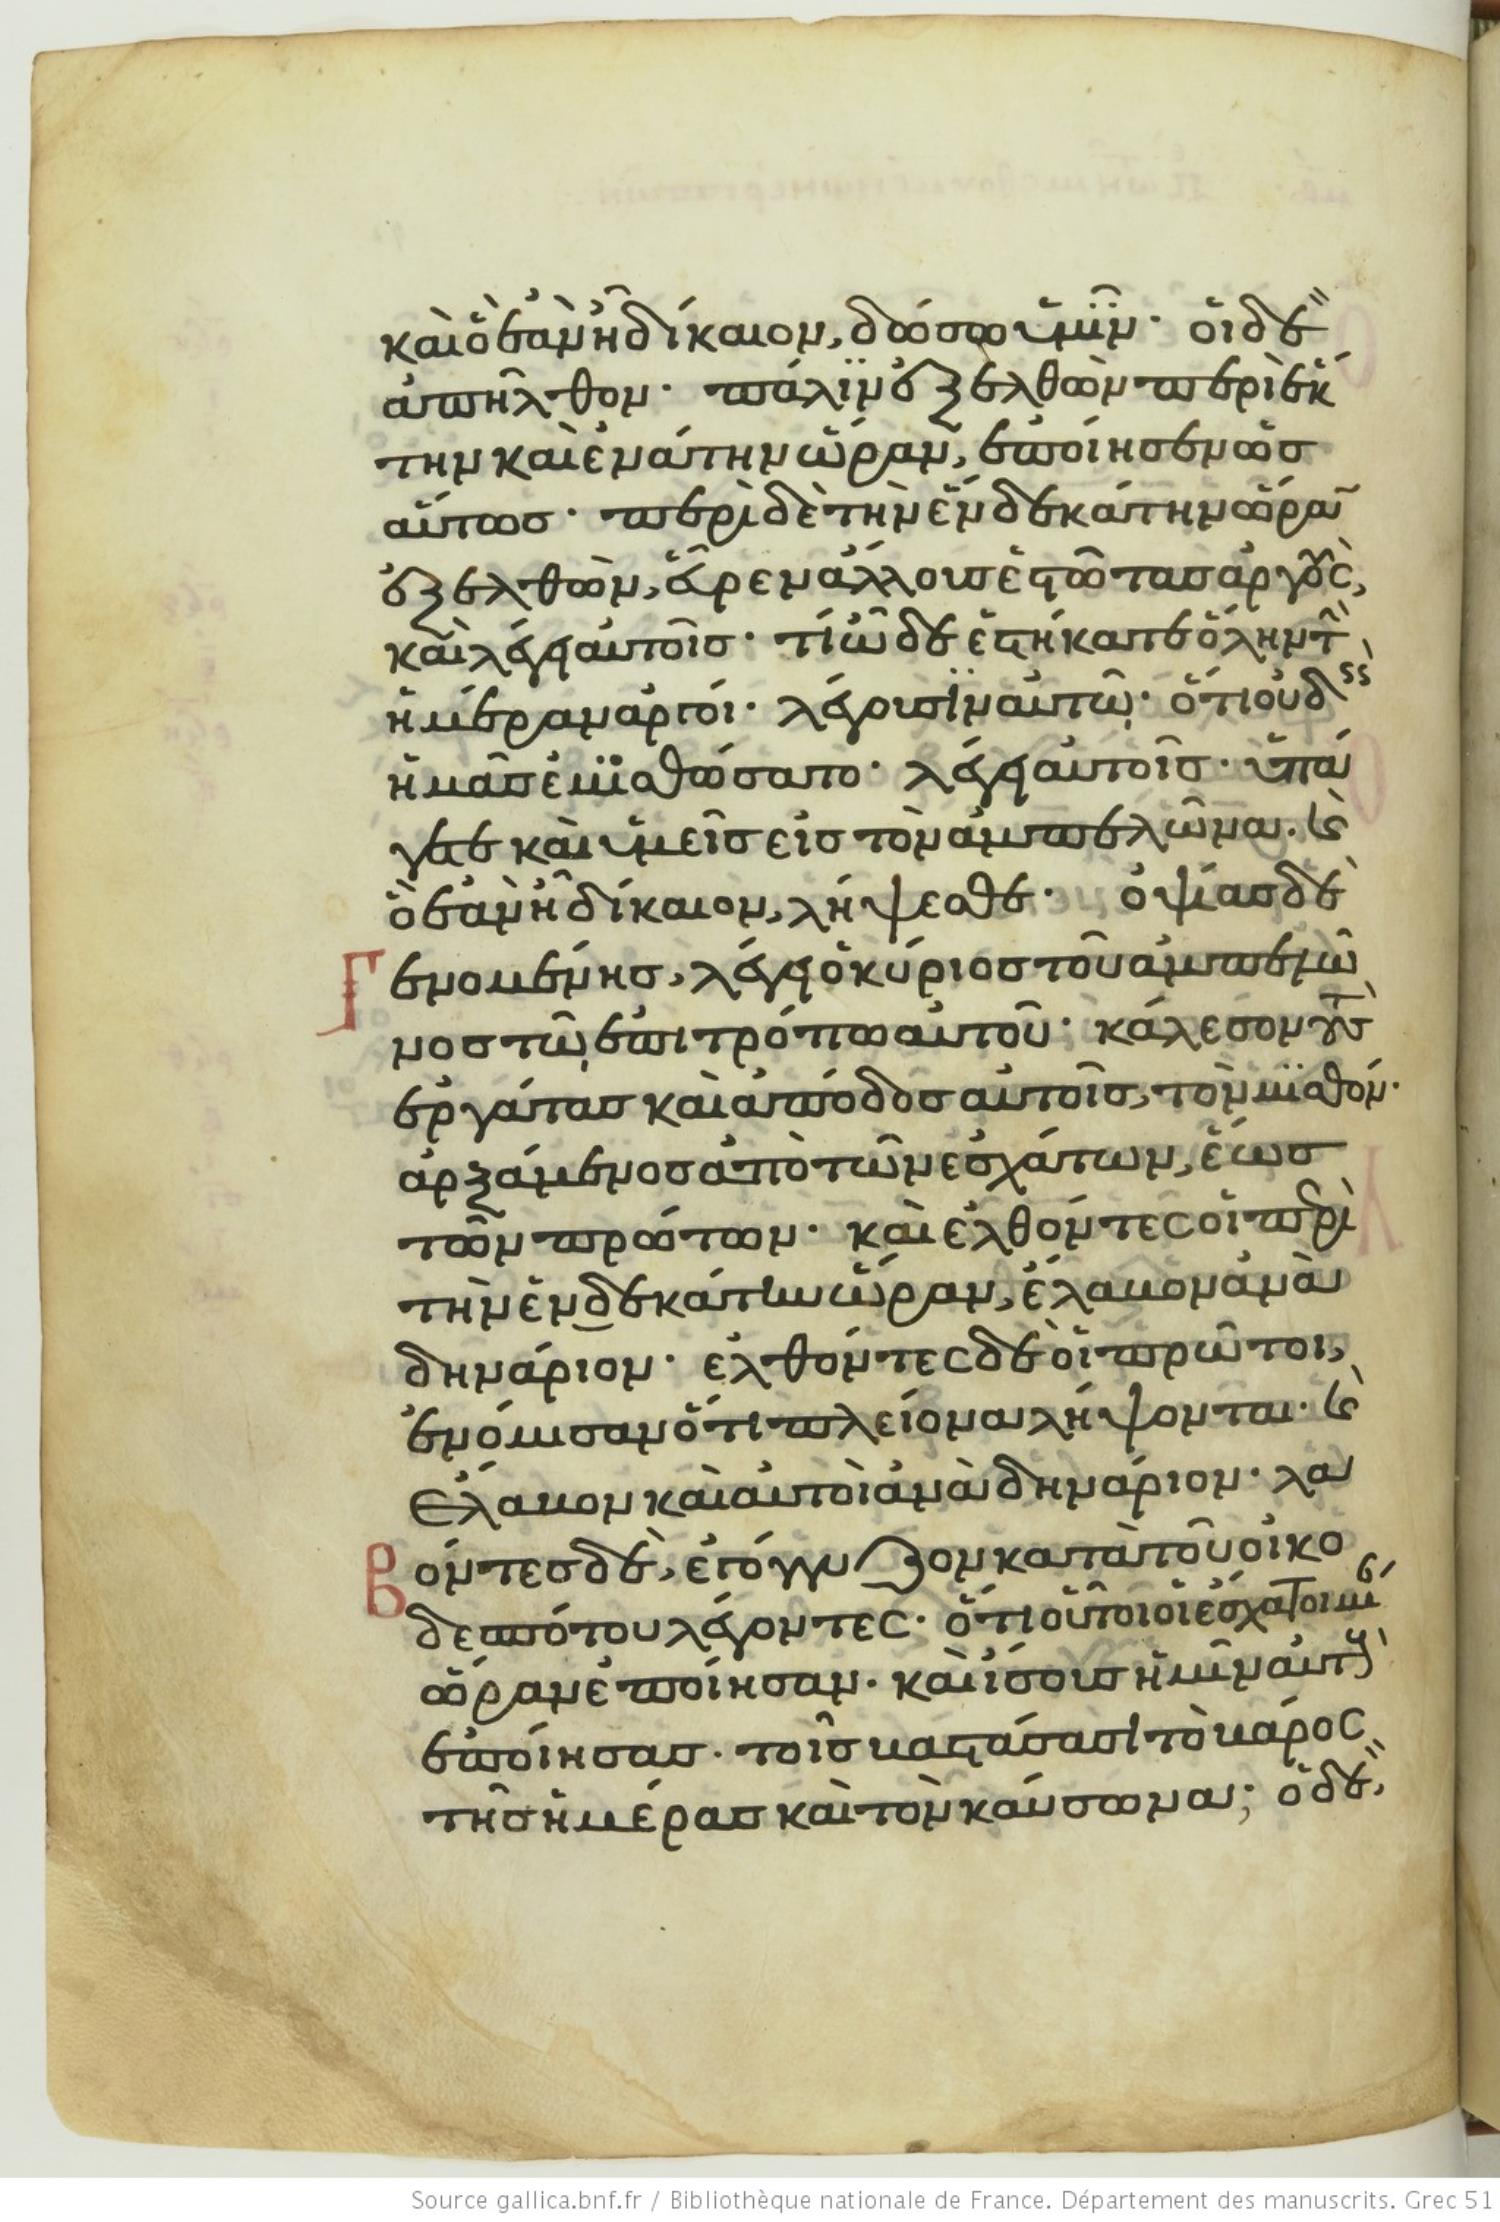 καὶ ὃ ἐὰν ᾖ δίκαιον, δώσω ὑμῖν· οἱ δὲ
ἀπῆλθον· πάλιν ἐξελθὼν περὶ ἕκ
την καὶ ἐνάτην ὥραν, ἐποίησεν ὡσ
αύτωσ· περὶ δὲ τὴν ἑνδεκάτην ὥραν
ἐξελθὼν, εὗρεν ἄλλουσ ἑστῶτασ ἀργοὺς,
καὶ λέγει αὐτοῖσ· τί ὧδε ἑστήκατε ὅλην τὴν
ἡμέραν ἀργοί· λέγουσιν αὐτῷ· ὅτι οὐδεὶς
ἡμᾶσ ἐμισθώσατο· λέγει αὐτοῖσ· ὑπά
γετε καὶ ὑμεῖσ εἰσ τὸν ἀμπελῶνα. κὲ
ὃ ἐὰν ᾖ δίκαιον, λήψεσθε· ὀψίασ δὲ
Γενομένησ, λέγει ὁ κύριοσ τοῦ ἀμπελῶ
νοσ τῷ ἐπιτρόπω αὐτοῦ· κάλεσον τοὺς
ἐργάτασ καὶ ἀπόδοσ αὐτοῖσ, τὸν μισθόν·
ἀρξάμενοσ ἀπὸ τῶν ἐσχάτων, ἕωσ
τῶν πρώτων· καὶ ἐλθόντες οἱ περὶ
τὴν ἑνδεκάτην ὥραν, ἔλαβον ἀνὰ
δηνάριον· ἐλθόντες δὲ οἱ πρῶτοι,
ἐνόμισαν ὅτι πλείονα λήψονται· κὲ
ἔλαβον καὶ αὐτοὶ ἀνὰ δηνάριον· λα
Βόντεσ δὲ, ἐγόγγυζον κατὰ τοῦ οἰκο
δεσπότου λέγοντες· ὅτι οὗτοι οἱ ἔσχατοι μί
ὥραν ἐποίησαν. καὶ ἴσουσ ἡμῖν αὐτοὺς
ἐποίησασ. τοῖσ βαστάσασι τὸ βάρος
τῆσ ἡμέρασ καὶ τὸν καύσωνα; ὁ δὲ,
Source gallica.bnf.fr / Bibliothèque nationale de France. Département des manuscrits. Grec 51